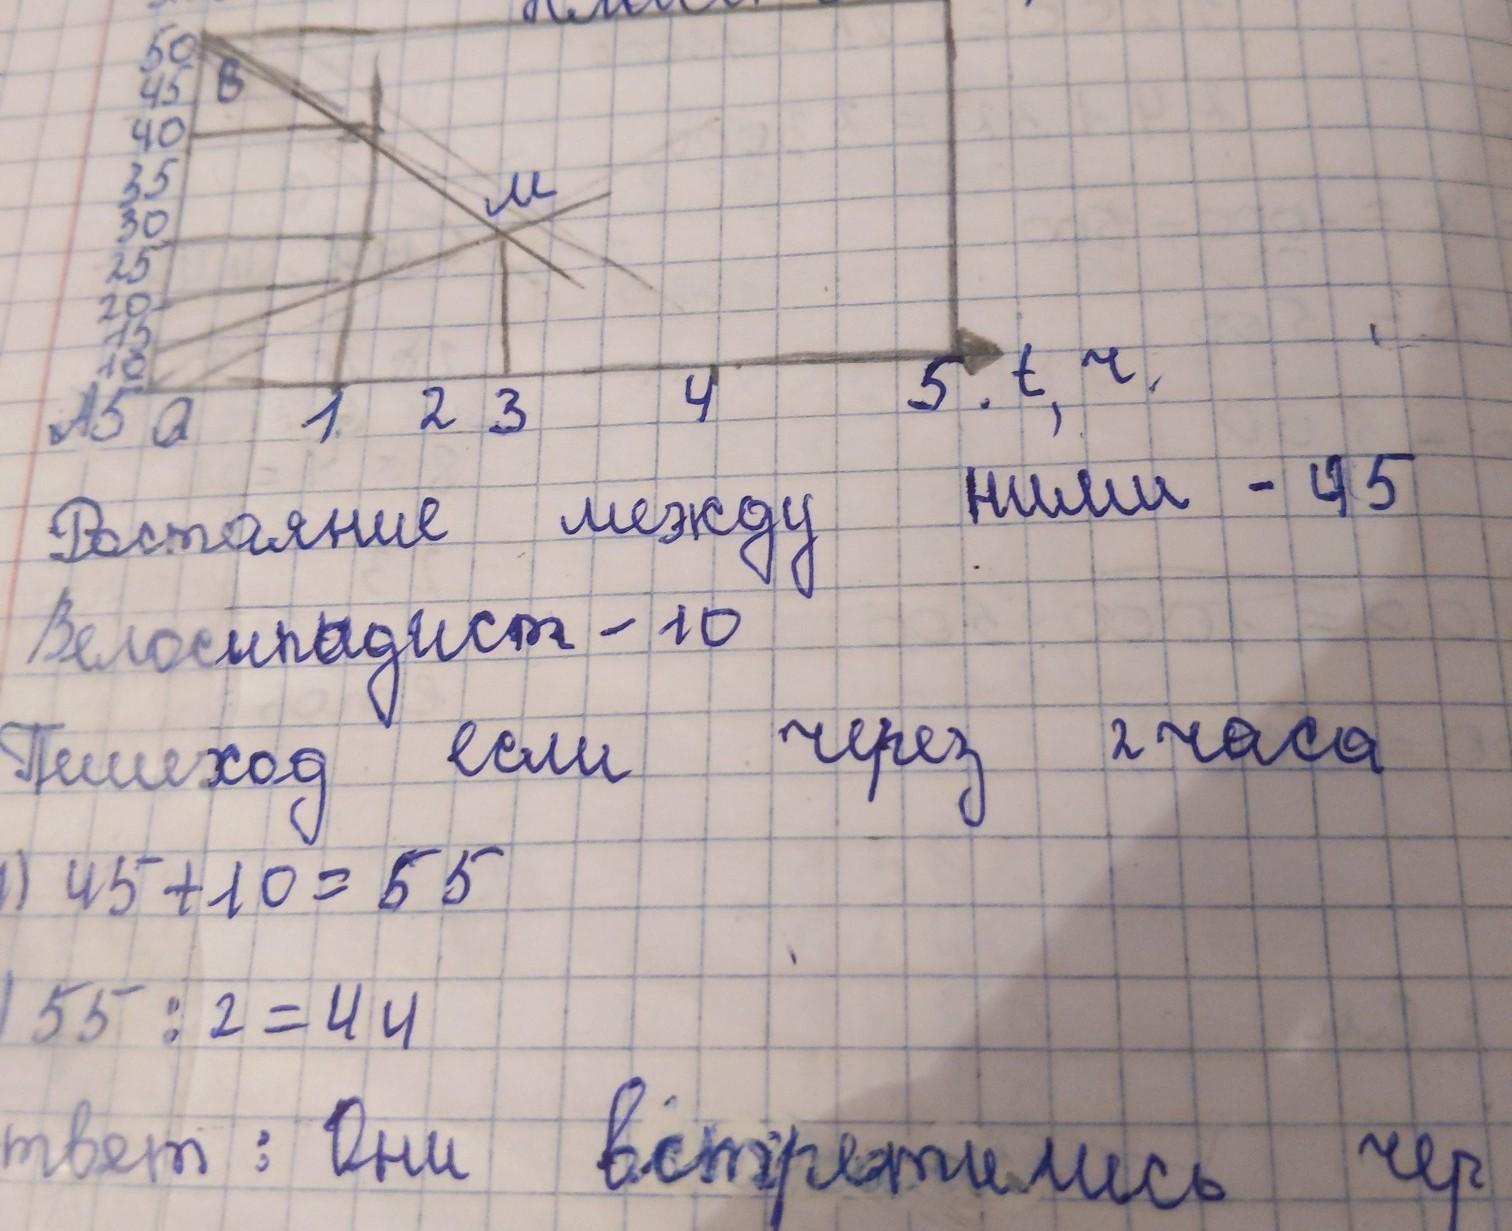 50
B
45
40
35
30
M
25
20
15
10
A5 0 1 2 3 4 5. t, ч.
Растаяние между ними - 45
Велосипадист - 10
Пешеход если через 2 часа
1) 45+10=55
) 55:2=44
твет: Они встретились чер